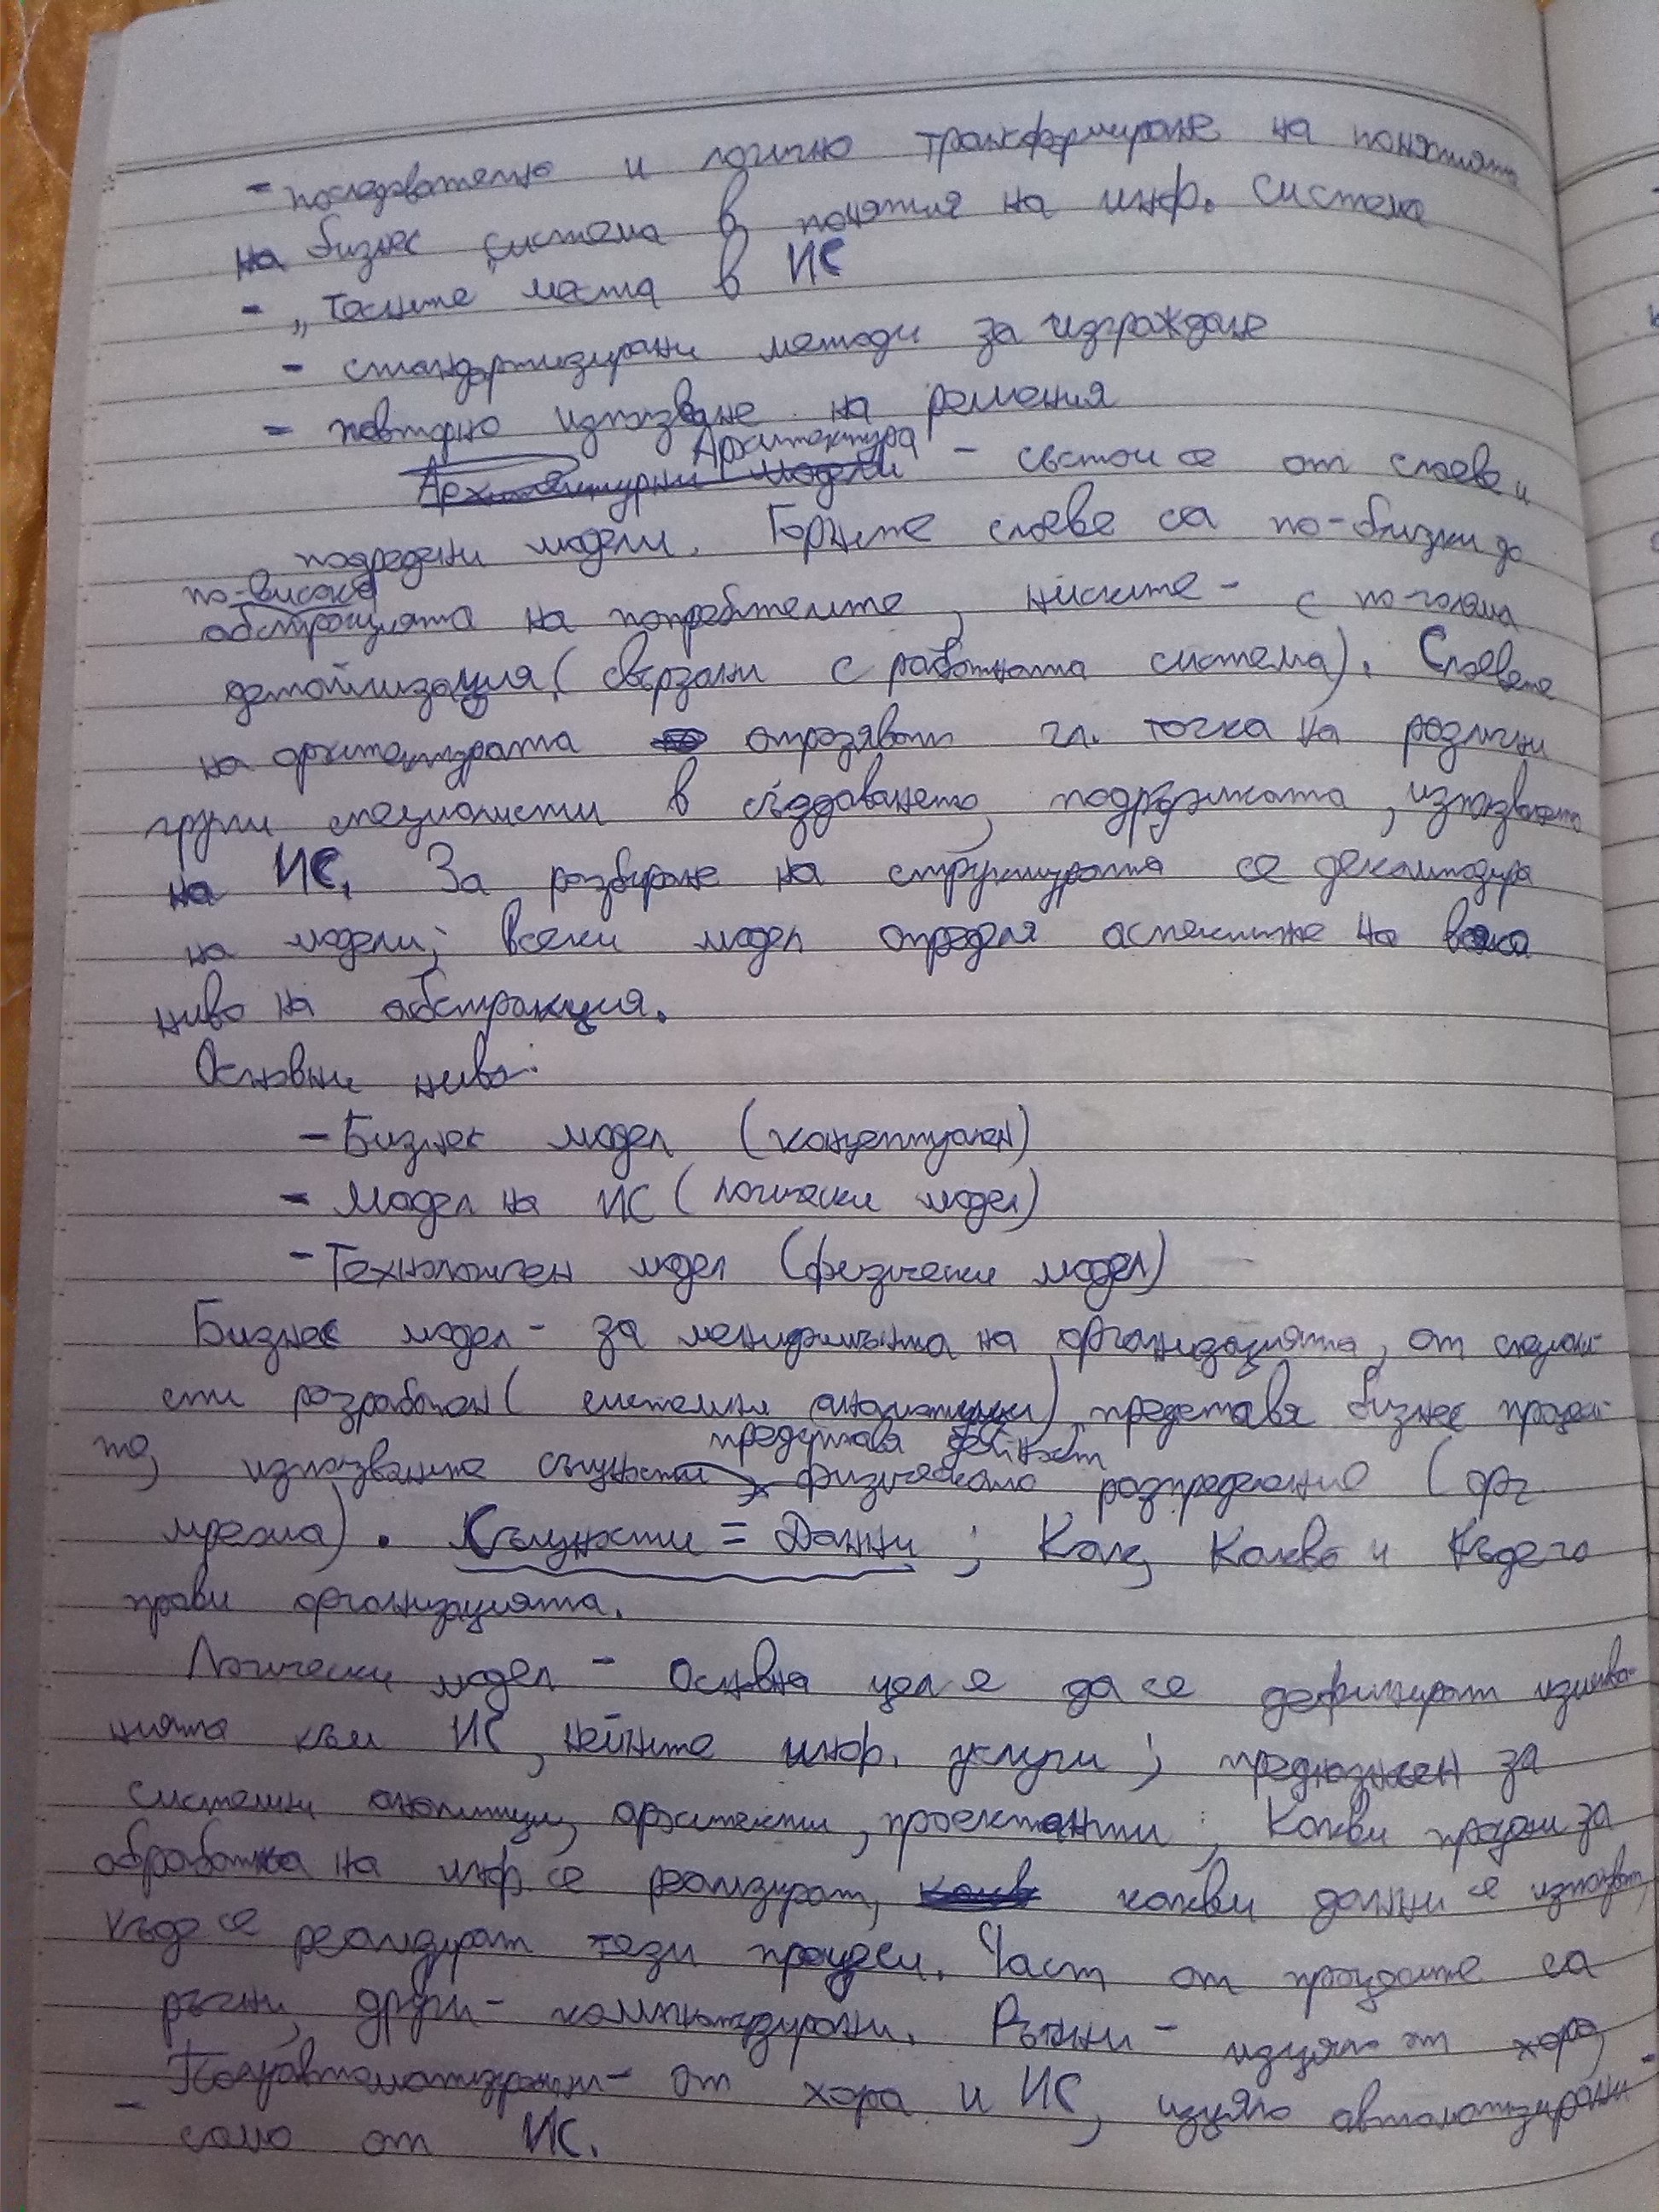 - последователно и логично трансформиране на понятията
на бизнес система в понятия на инф. система
- „тесните места в ИС
- стандартизирани методи за изграждане
- повторно използване на решения
Архитектура
Архитектурни модели - състои се от слоеве и
подредени модели. Горните слоеве са по-близки до
по-висока
абстракцията на потребителите, ниските - с по-голяма
детайлизация (свързани с работната система). Слоевете
на архитектурата отразяват гл. точка на различни
групи специалисти в създаването, поддръжката, използването
на ИС. За разбиране на структурата се декомпозира
на модели; всеки модел определя аспектите на всяко
ниво на абстракция.
Основни нива:
- Бизнес модел (концептуален)
- Модел на ИС (логически модел)
- Технологичен модел (физически модел)
Бизнес модел - за мениджмънта на организацията, от специали-
сти разработен (системни аналитици), представя бизнес процеси-
те, използваните същности, физическото разпределение (орг.
представя дейност
мрежа). Същности = Данни; Как, Какво и Къде го
прави организацията.
Логически модел - Основна цел е да се дефинират изисква-
нията към ИС, нейните инф. услуги; предназначен за
системни аналитици, архитекти, проектанти; Какви процеси за
обработка на инф. се реализират, какви данни се използват,
къде се реализират тези процеси. Част от процесите са
ръчни, други - компютъризирани. Ръчни - изцяло от хора,
Полуавтоматизирани - от хора и ИС, изцяло автоматизирани
- само от ИС.